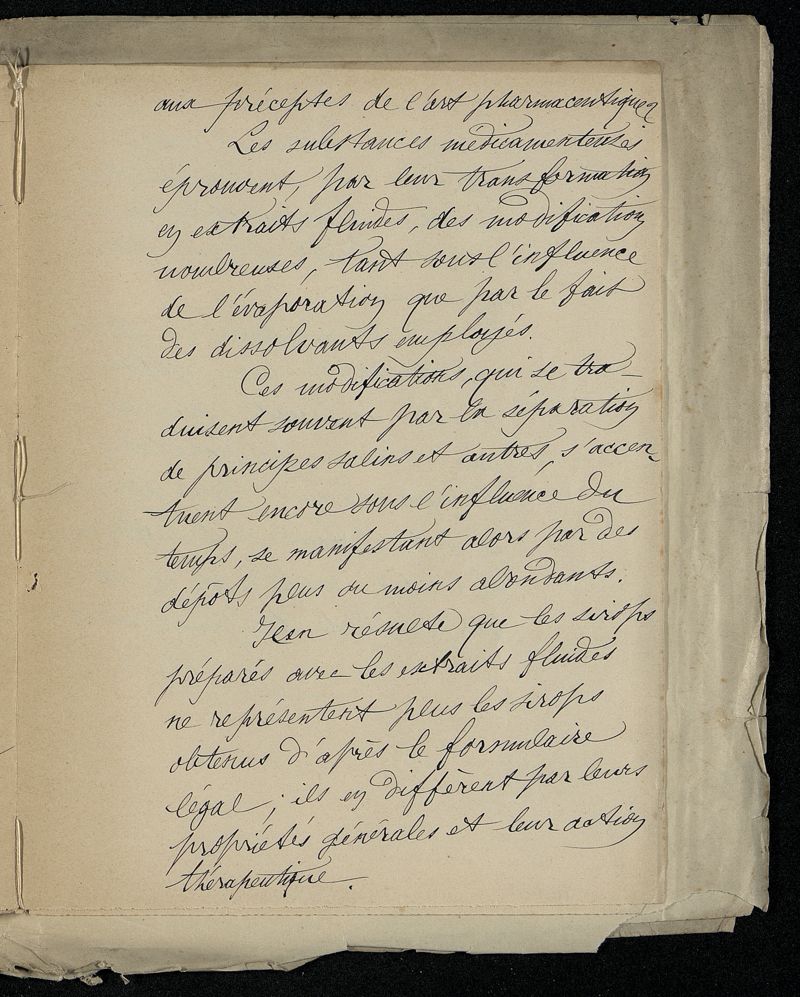 aux préceptes de l'art pharmaceutique.
Les substances médicamenteuses
éprouvent, par leur transformation
en extraits fluides, des modification
nombreuses, tant sous l'influence
de l'évaporation que par le fait
des dissolvants employés.
Ces modifications, qui se tra-
duisent souvent par la séparation
de principes salins et autres, s'accen-
tuent encore sous l'influence du
temps, se manifestant alors par des
dépots plus ou moins abondants.
Il en résulte que les sirops
préparés avec les extraits fluides
ne représentent plus les sirops
obtenus d'après le formulaire
légal; ils en diffèrent par leurs
propriétés générales et leur action
thérapeutique.